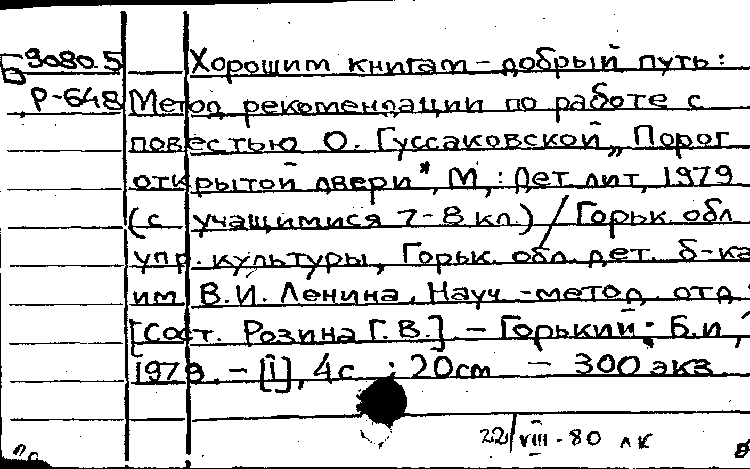 Б3080.5 Хорошим книгам - добрый путь:
Р-648 Метод рекомендации по работе с
повестью О. Гуссаковской „Порог
открытой двери", М.: Дет. лит, 1979
(с учащимися 7-8 кл.) / Горьк. обл
упр. культуры, Горьк. обл. дет. б-ка
им В.И. Ленина. Науч-метод. отд;
[Сост. Розина Г.В.] - Горький: Б.и.,
1979. - [1], 4с ; 20см - 300 экз
22/VIII-80 лк